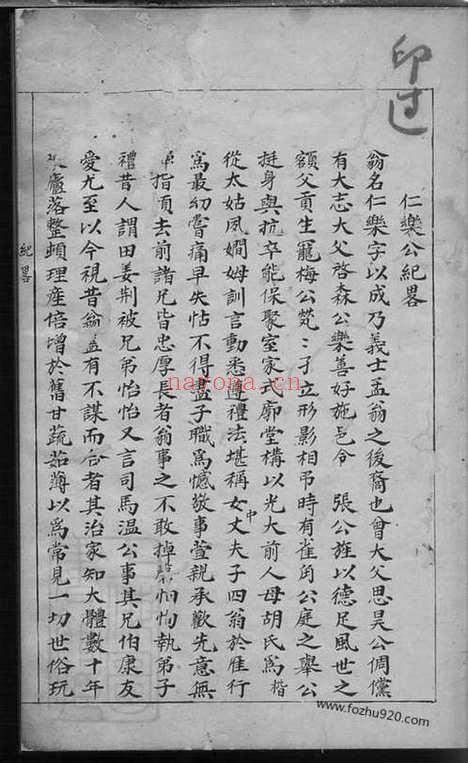 印过
仁樂公紀畧
翁名仁樂字以成乃義士孟翁之後裔也曾大父思昊公倜儻
有大志大父啓森公樂善好施邑令 張公旌以德足風世之
額父貢生寵梅公煢〻孑立形影相弔時有雀角公庭之舉公
挺身與抗卒能保聚室家式廓堂構以光大前人母胡氏爲楷
從太姑夙嫻姆訓言動悉遵禮法堪稱女中丈夫子四翁於隹行
爲最幼嘗痛早失怙不得盡子職爲憾敬事萱親承歡先意無
指須去前諸兄皆忠厚長者翁事之不敢掉 怕恂執弟子
禮昔人謂田姜荆被兄弟怡怡又言司馬温公事其兄伯康友
愛尤至以今視昔翁盖有不謀而合者其治家知大體數十年
廬落整頓理産倍增於舊甘蔬茹薄以爲常見一切世俗玩
紀畧
nayona.cn
www.fozhu920.com